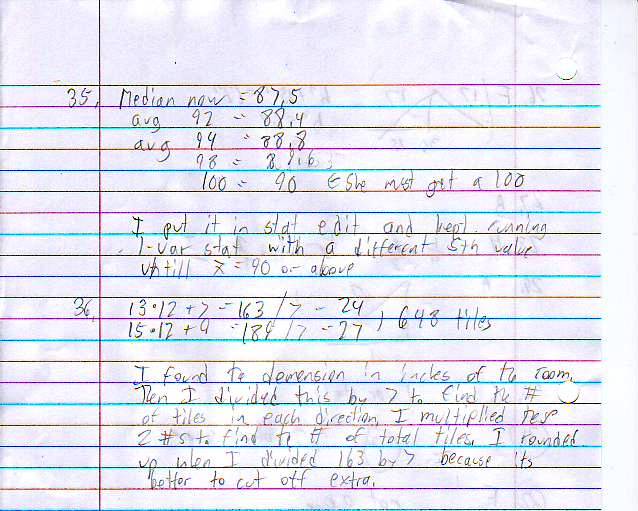 35. Median now = 87.5
avg 92 = 88.4
avg 94 = 88.8
98 = 89.6
100 = 90 ∈ She must get a 100
I put it in stat edit and kept running
1-var stat with a different 5th value
untill x̄ = 90 or above
36. 13•12 + 7 = 163 / 7 = 24
15•12 + 9 = 189 / 7 = 27 ) 648 tiles
I found the demension in inches of the room.
Then I divided this by 7 to find the #
of tiles in each direction, I multiplied
2 #s to find the # of total tiles. I rounded
up when I divided 163 by 7 because its
better to cut off extra.